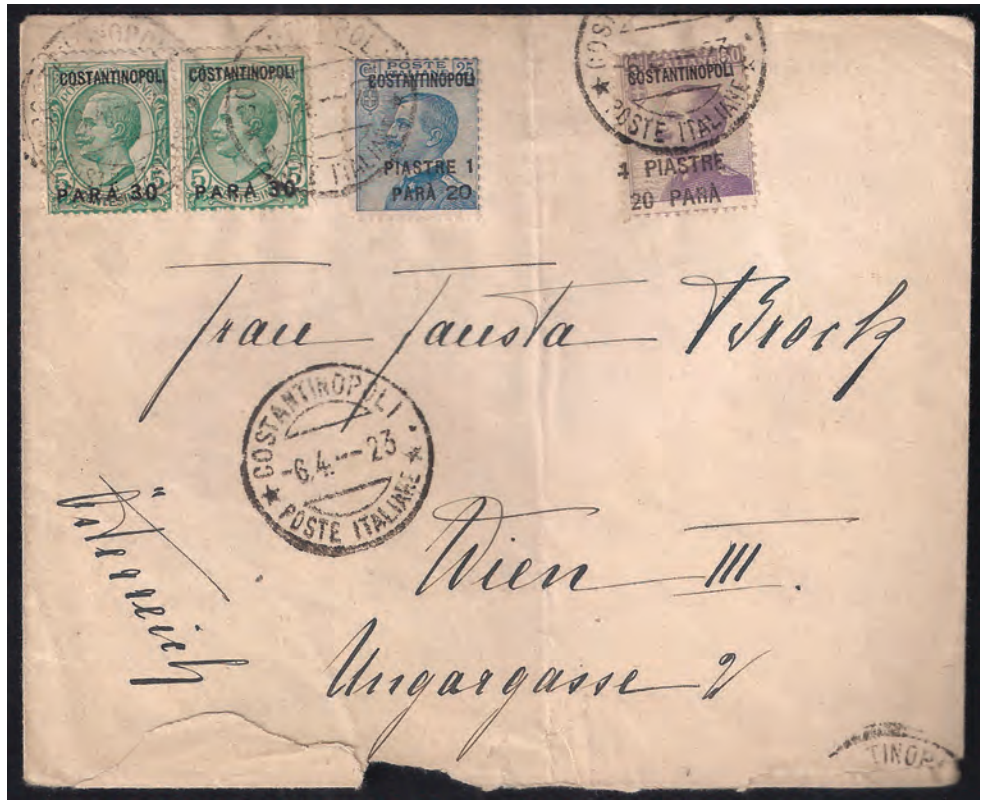 COSTANTINOPOLI COSTANTINOPOLI
5 5 5
PARA 30 PARA 30
POSTE 25
COSTANTINOPOLI
PIASTRE 1
PARÀ 20
COSTANTINOPOLI
POSTE ITALIANE
4 PIASTRE
20 PARÀ
Frau Fausta Brock
COSTANTINOPOLI
-6.4.---23
POSTE ITALIANE
Österreich
Wien III.
Ungargasse 2
TINOP